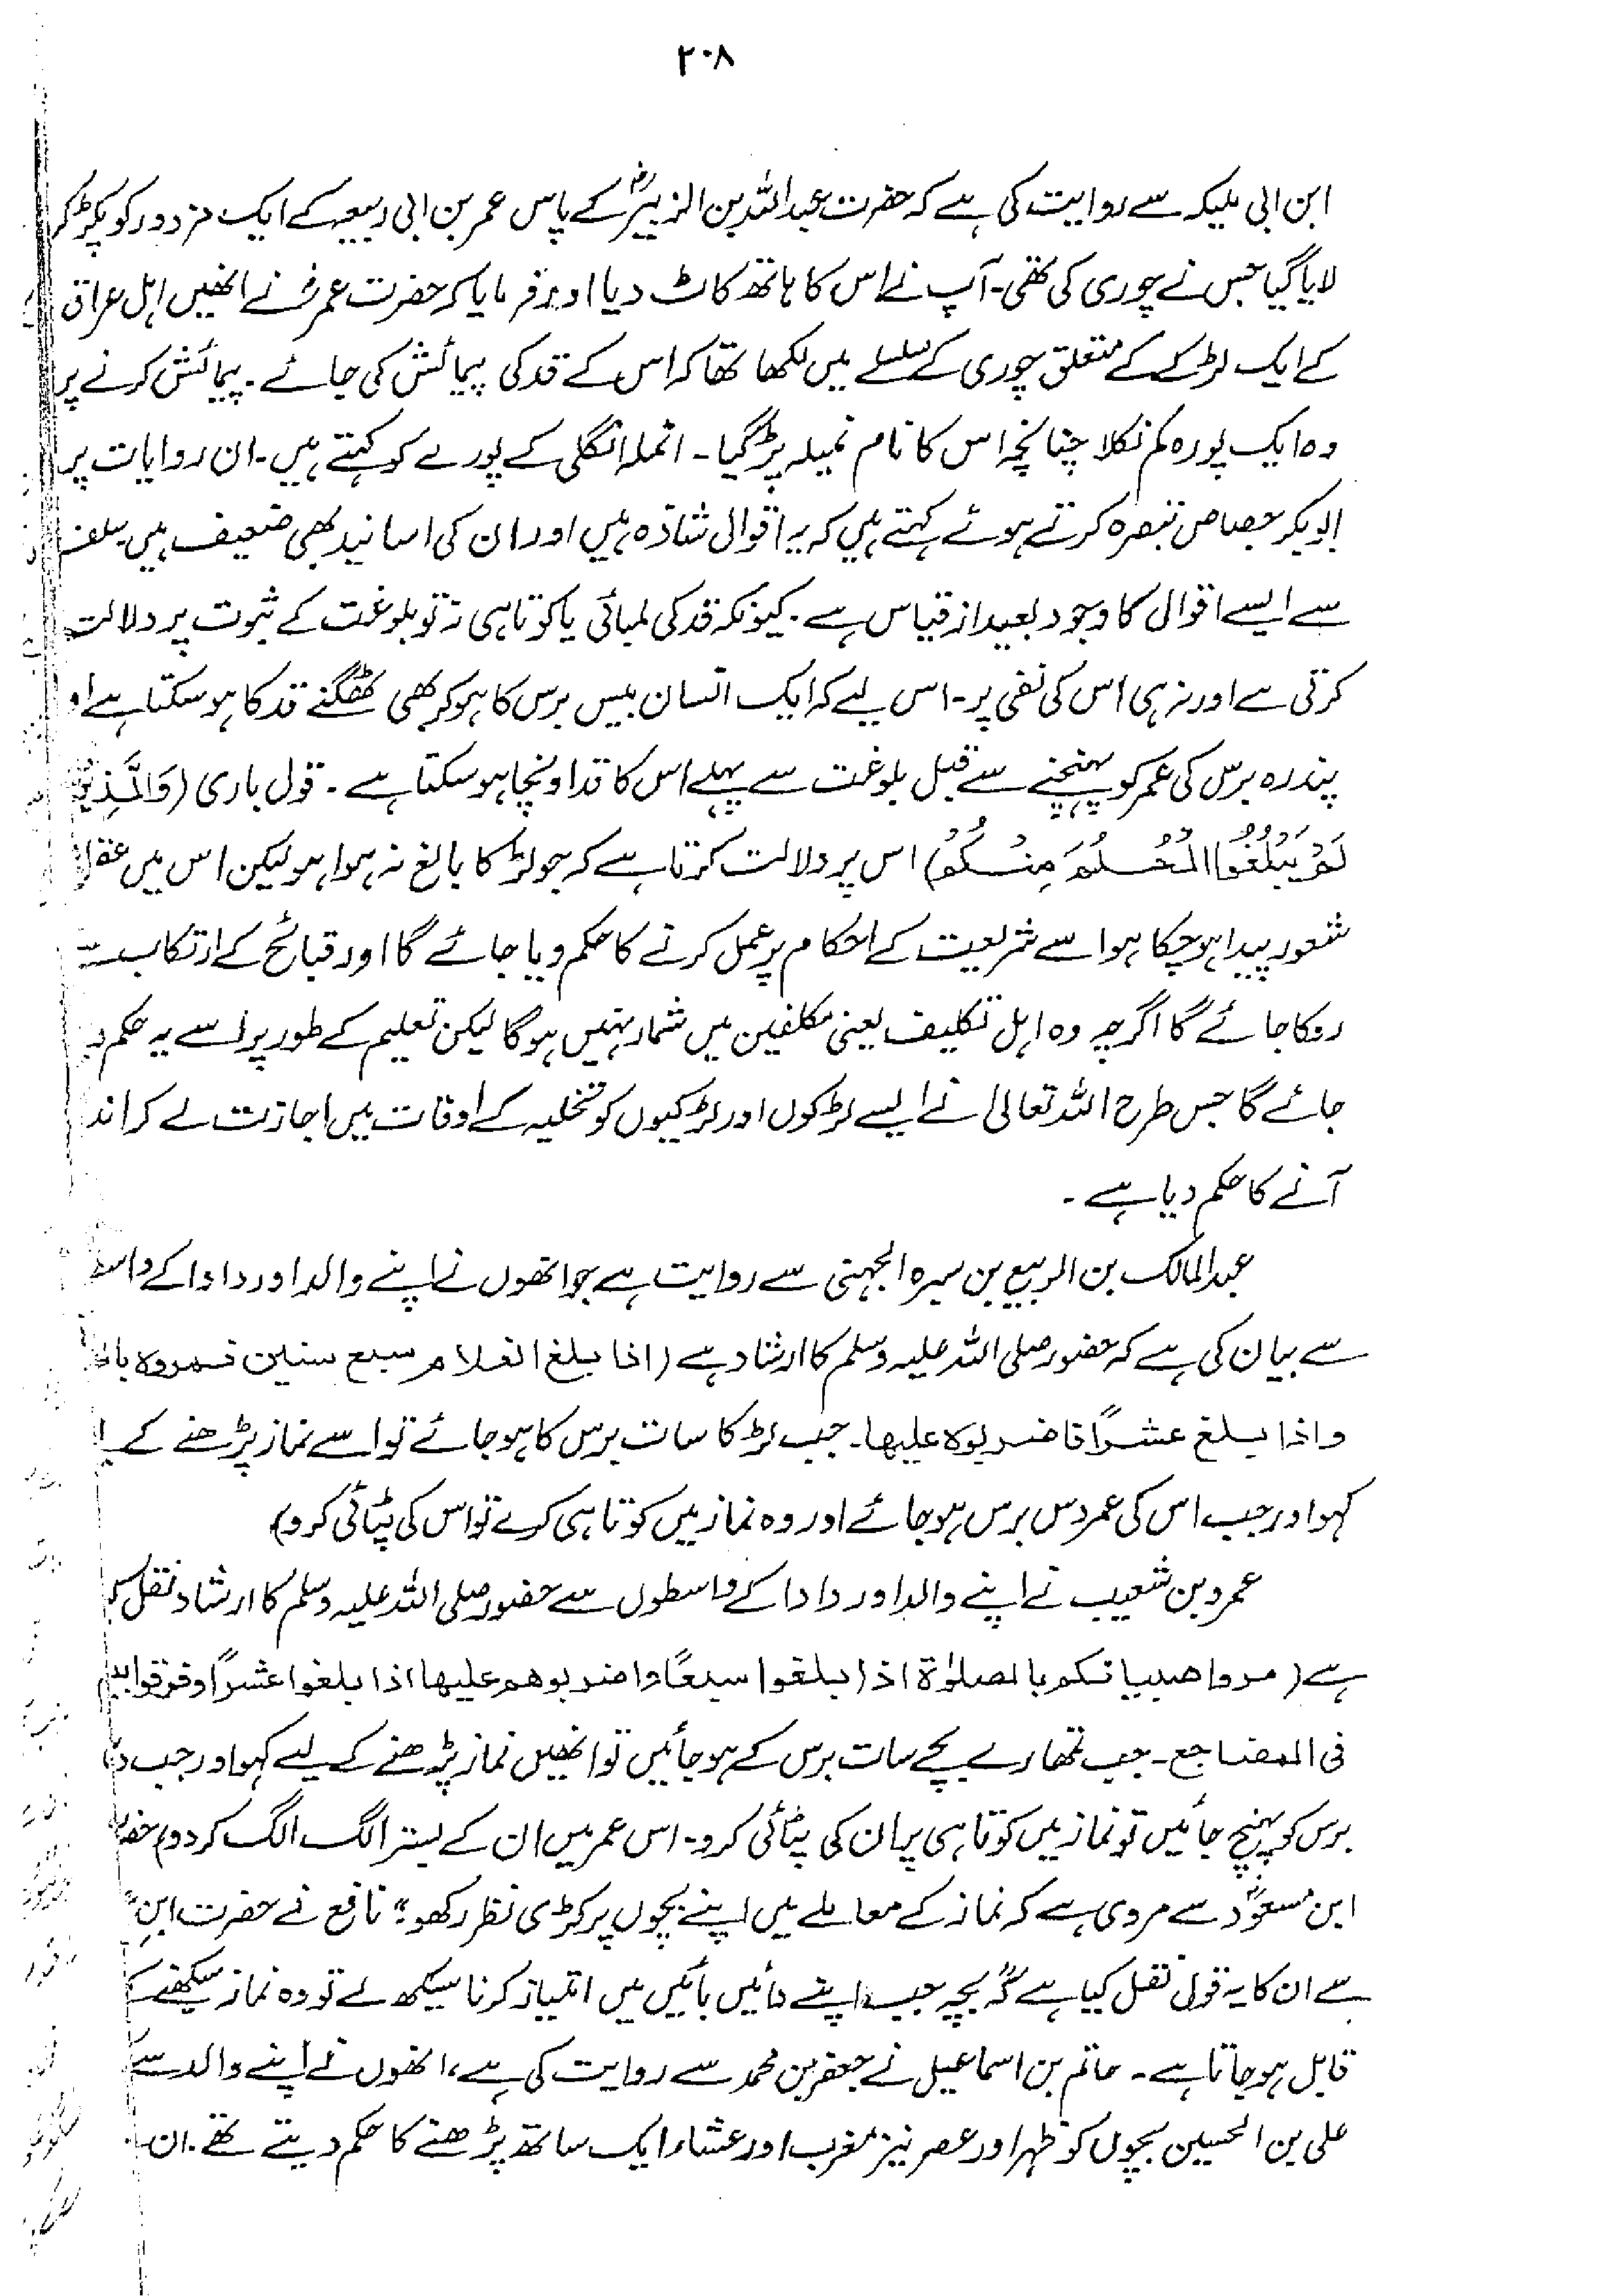 ۲۰۸
ابن ابی ملیکہ سے روایت کی ہے کہ حضرت عبداللہ بن الزبیرؓ کے پاس عمر بن ابی ربیعہ کے ایک مزدور کو پکڑ کر
لایا گیا جس نے چوری کی تھی۔ آپ نے اس کا ہاتھ کاٹ دیا اور فرمایا کہ حضرت عمرؓ نے انھیں اہل عراق
کے ایک لڑکے کے متعلق چوری کے سلسلے میں لکھا تھا کہ اس کے قد کی پیمائش کی جائے۔ پیمائش کرنے پر
وہ ایک پورہ کم نکلا چنانچہ اس کا نام نمیلہ پڑ گیا۔ انملہ انگلی کے پورے کو کہتے ہیں۔ ان روایات پر
ابوبکر جصاص تبصرہ کرتے ہوئے کہتے ہیں کہ یہ اقوال شاذہ ہیں اور ان کی اسانید بھی ضعیف ہیں سلف
سے ایسے اقوال کا وجود بعید از قیاس ہے۔ کیونکہ قد کی لمبائی یا کوتاہی نہ تو بلوغت کے ثبوت پر دلالت
کرتی ہے اور نہ ہی اس کی نفی پر۔ اس لیے کہ ایک انسان بیس برس کا ہو کر بھی ٹھگنے قد کا ہو سکتا ہے او
پندرہ برس کی عمر کو پہنچنے سے قبل بلوغت سے پہلے اس کا قد اونچا ہو سکتا ہے۔ قول باری (وَالَّذِیْنَ
لَمْ یَبْلُغُوا الْحُلُمَ مِنْکُمْ) اس پر دلالت کرتا ہے کہ جو لڑکا بالغ نہ ہوا ہو لیکن اس میں عقل
شعور پیدا ہو چکا ہو اسے شریعت کے احکام پر عمل کرنے کا حکم دیا جائے گا اور قبائح کے ارتکاب سے
روکا جائے گا اگرچہ وہ اہل تکلیف یعنی مکلفین میں شمار نہیں ہو گا لیکن تعلیم کے طور پر اسے یہ حکم د
جائے گا جس طرح اللہ تعالیٰ نے ایسے لڑکوں اور لڑکیوں کو تخلیہ کے اوقات میں اجازت لے کر اند
آنے کا حکم دیا ہے۔
عبدالمالک بن الربیع بن سبرہ الجہنی سے روایت ہے جو انھوں نے اپنے والد اور دادا کے واسط
سے بیان کی ہے کہ حضور صلی اللہ علیہ وسلم کا ارشاد ہے (اذا بلغ الغلام سبع سنین فمروہ
واذا بلغ عشراً فاضربوہ علیھا۔ جب لڑکا سات برس کا ہو جائے تو اسے نماز پڑھنے کے
کہو اور جب اس کی عمر دس برس ہو جائے اور وہ نماز میں کوتاہی کرے تو اس کی پٹائی کرو)
عمرو بن شعیب نے اپنے والد اور دادا کے واسطوں سے حضور صلی اللہ علیہ وسلم کا ارشاد نقل ک
ہے (مروا صبیانکم بالصلوٰۃ اذا بلغوا سبعًا واضربوھم علیھا اذا بلغوا عشراً وفرقوا
فی المضاجع۔ جب تمھارے بچے سات برس کے ہو جائیں تو انھیں نماز پڑھنے کے لیے کہو اور جب د
برس کو پہنچ جائیں تو نماز میں کوتاہی پر ان کی پٹائی کرو۔ اس عمر میں ان کے بستر الگ الگ کر دو)
ابن مسعودؓ سے مروی ہے کہ نماز کے معاملے میں اپنے بچوں پر کڑی نظر رکھو“ نافع نے حضرت ابن
سے ان کا یہ قول نقل کیا ہے کہ ”بچہ جب اپنے دائیں بائیں میں امتیاز کرنا سیکھ لے تو وہ نماز سیکھنے کے
قابل ہو جاتا ہے۔ حاتم بن اسماعیل نے جعفر بن محمد سے روایت کی ہے، انھوں نے اپنے والد سے
علی بن الحسین بچوں کو ظہر اور عصر نیز مغرب اور عشاء ایک ساتھ پڑھنے کا حکم دیتے تھے۔ ان